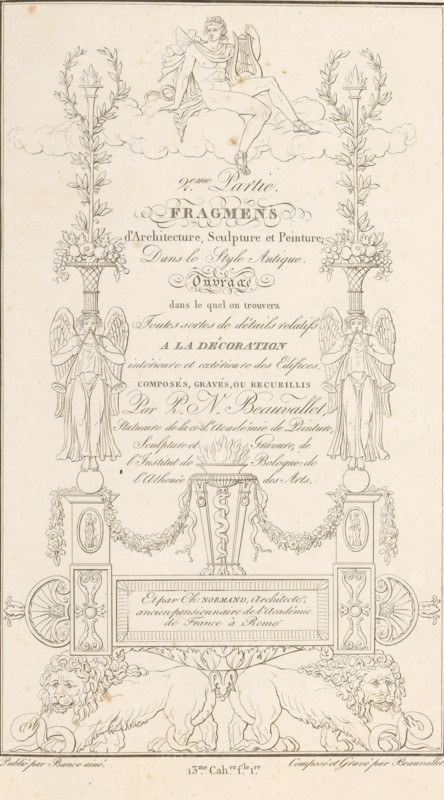 2.eme Partie.
FRAGMENS
d'Architecture, Sculpture et Peinture,
Dans le Style Antique.
Ouvrage
dans le quel on trouvera
Toutes sortes de détails relatifs
A LA DÉCORATION
intérieure et extérieure des Edifices,
COMPOSÉS, GRAVÉS, OU RECUEILLIS
Par P. N. Beauvallet,
Statuaire de la ci-d.t Académie de Peinture,
Sculpture et Gravure, de
l'Institut de Bologne, de
l'Athenée des Arts.
Et par Ch. NORMAND, Architecte,
ancien pensionnaire de l'Académie
de France à Rome
Publié par Bance ainé.
Composé et Gravé par Beauvallet
13.me Cah.er f.le 1.re